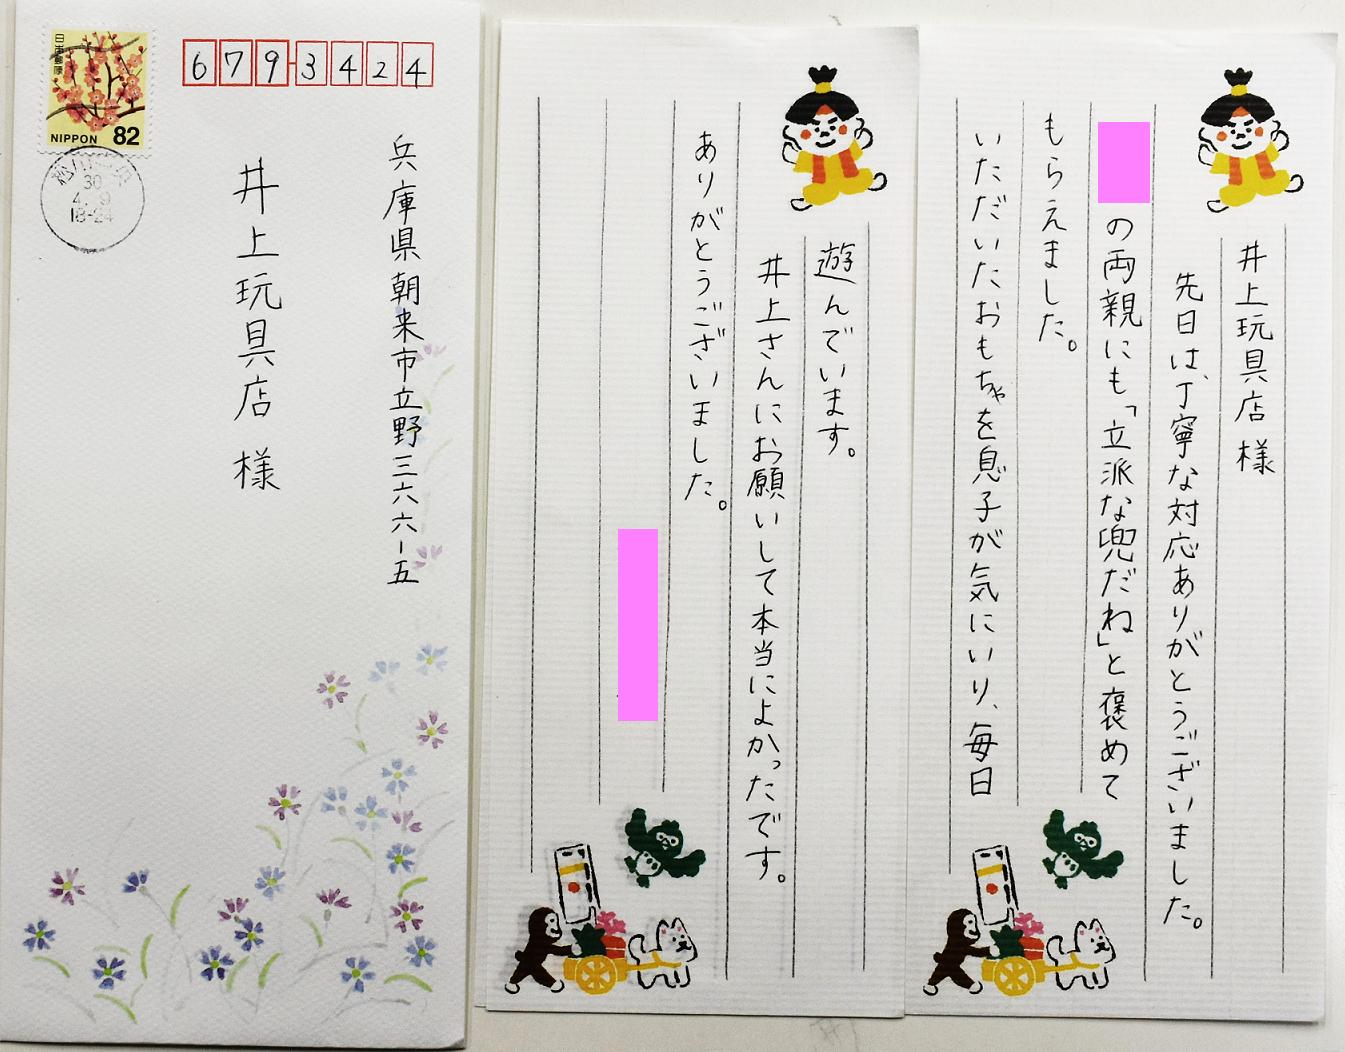 日本郵便
NIPPON 82
30
4. 9
18-24
679-3424
兵庫県朝来市立野三六六-五
井上玩具店 様
井上玩具店 様
先日は、丁寧な対応ありがとうございました。
の両親にも「立派な兜だね」と褒めて
もらえました。
いただいたおもちゃを息子が気にいり、毎日
遊んでいます。
井上さんにお願いして本当によかったです。
ありがとうございました。